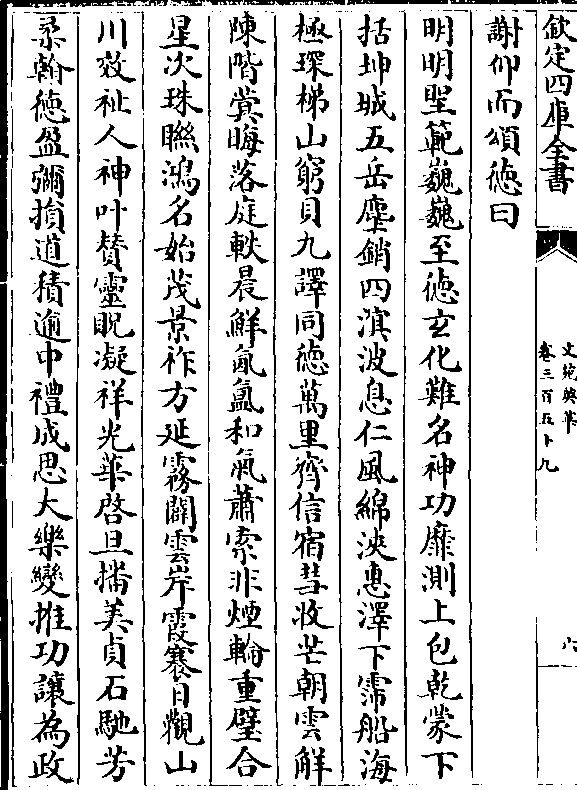 欽定四庫全書
文苑英華
卷三百五十九
六
謝仰而頌徳曰
明明聖範巍巍至徳玄化難名神功靡測上包乾蒙下
括坤城五岳塵銷四溟波息仁風綿浹惠澤下霈船海
極琛梯山窮貝九譯同徳萬里齊信宿彗收芒朝雲解
陳階蓂晦落庭軼晨鮮氤氲和氣蕭索非煙輪重璧合
星次珠聯鴻名始茂景祚方延霧闢雲岸霞褰日觀山
川效祉人神叶賛靈貺凝祥光華啓旦摛美貞石馳芳
柔翰徳盈彌損道積逾中禮成思大樂變推功讓為政